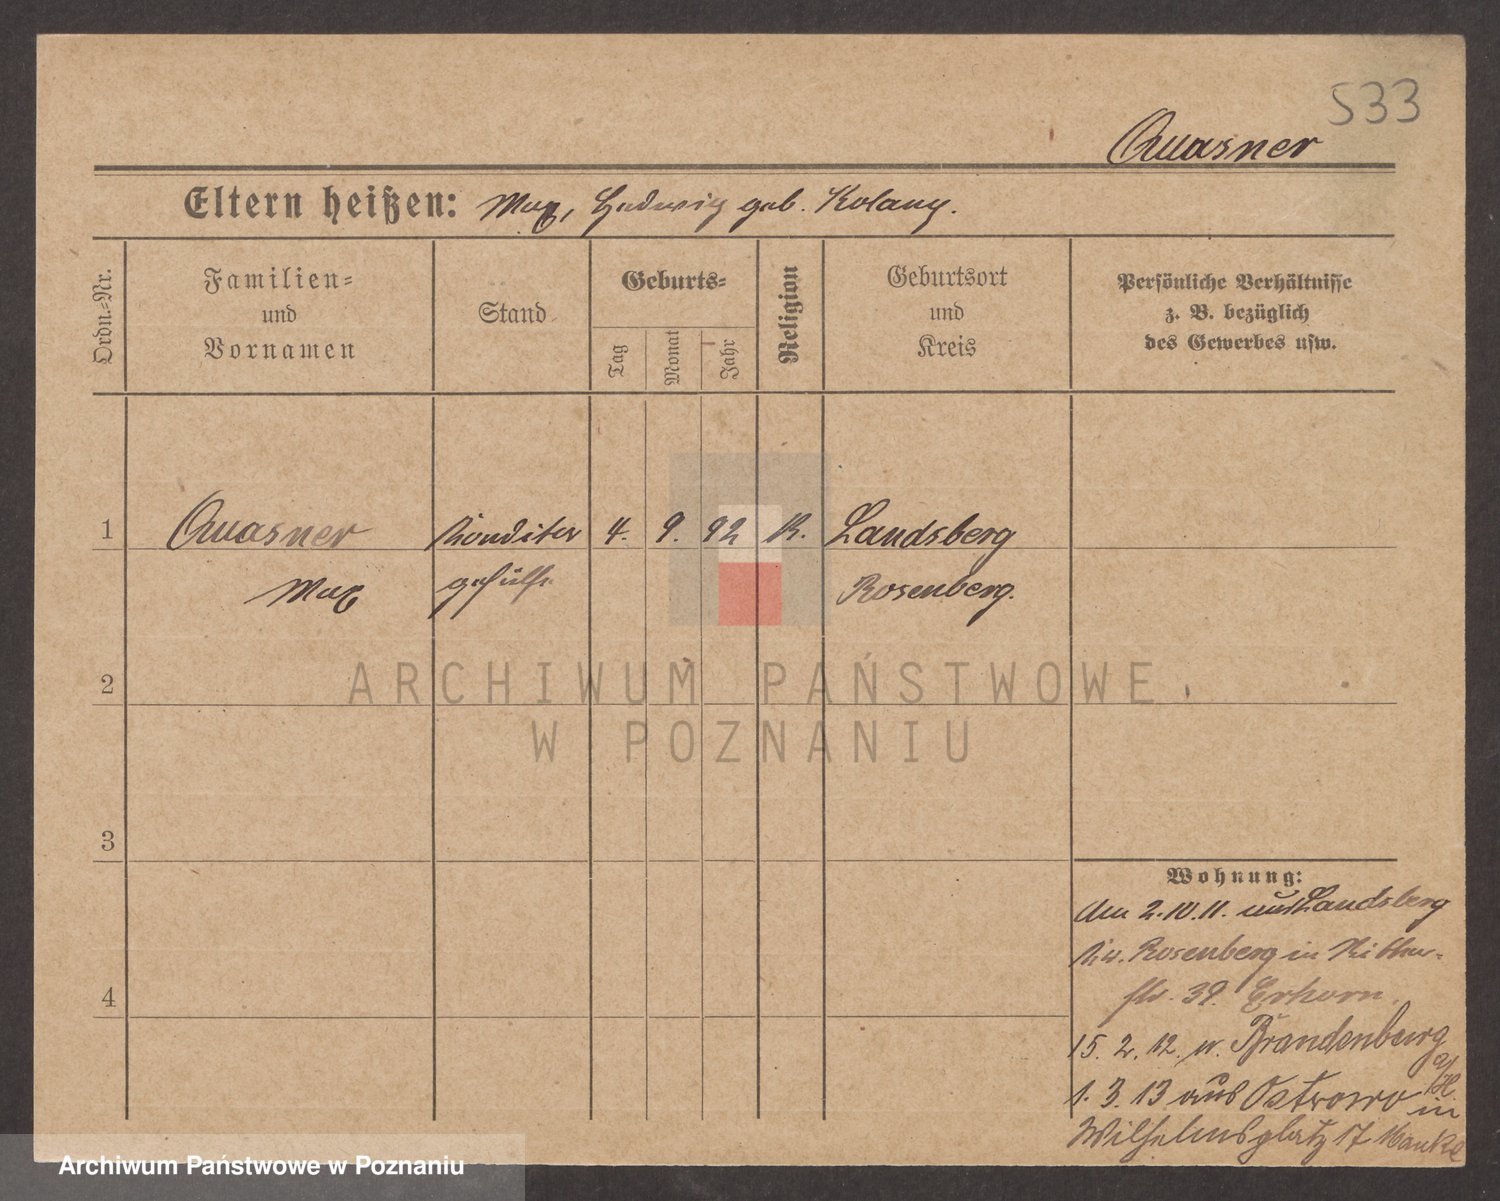 533
Quasner
Eltern heißen: Max, Hedwig geb. Kolany.
Ordn.=Nr.
Familien=
und
Vornamen
Stand
Geburts=
Tag
Monat
Jahr
Religion
Geburtsort
und
Kreis
Persönliche Verhältnisse
z. B. bezüglich
des Gewerbes usw.
1 Quasner Konditor 4. 9. 92 K. Landsberg
Max gehülfe Rosenberg.
2
3
4
Wohnung:
Am 2.10.11. aus Landsberg
Kr. Rosenberg in
str. 39. Erhorn.
15. 2. 12. n. Brandenburg
a/H.
1. 3. 13 aus Ostrowo in
Wilhelmsplatz 17 Manke
ARCHIWUM PAŃSTWOWE
W POZNANIU
Archiwum Państwowe w Poznaniu